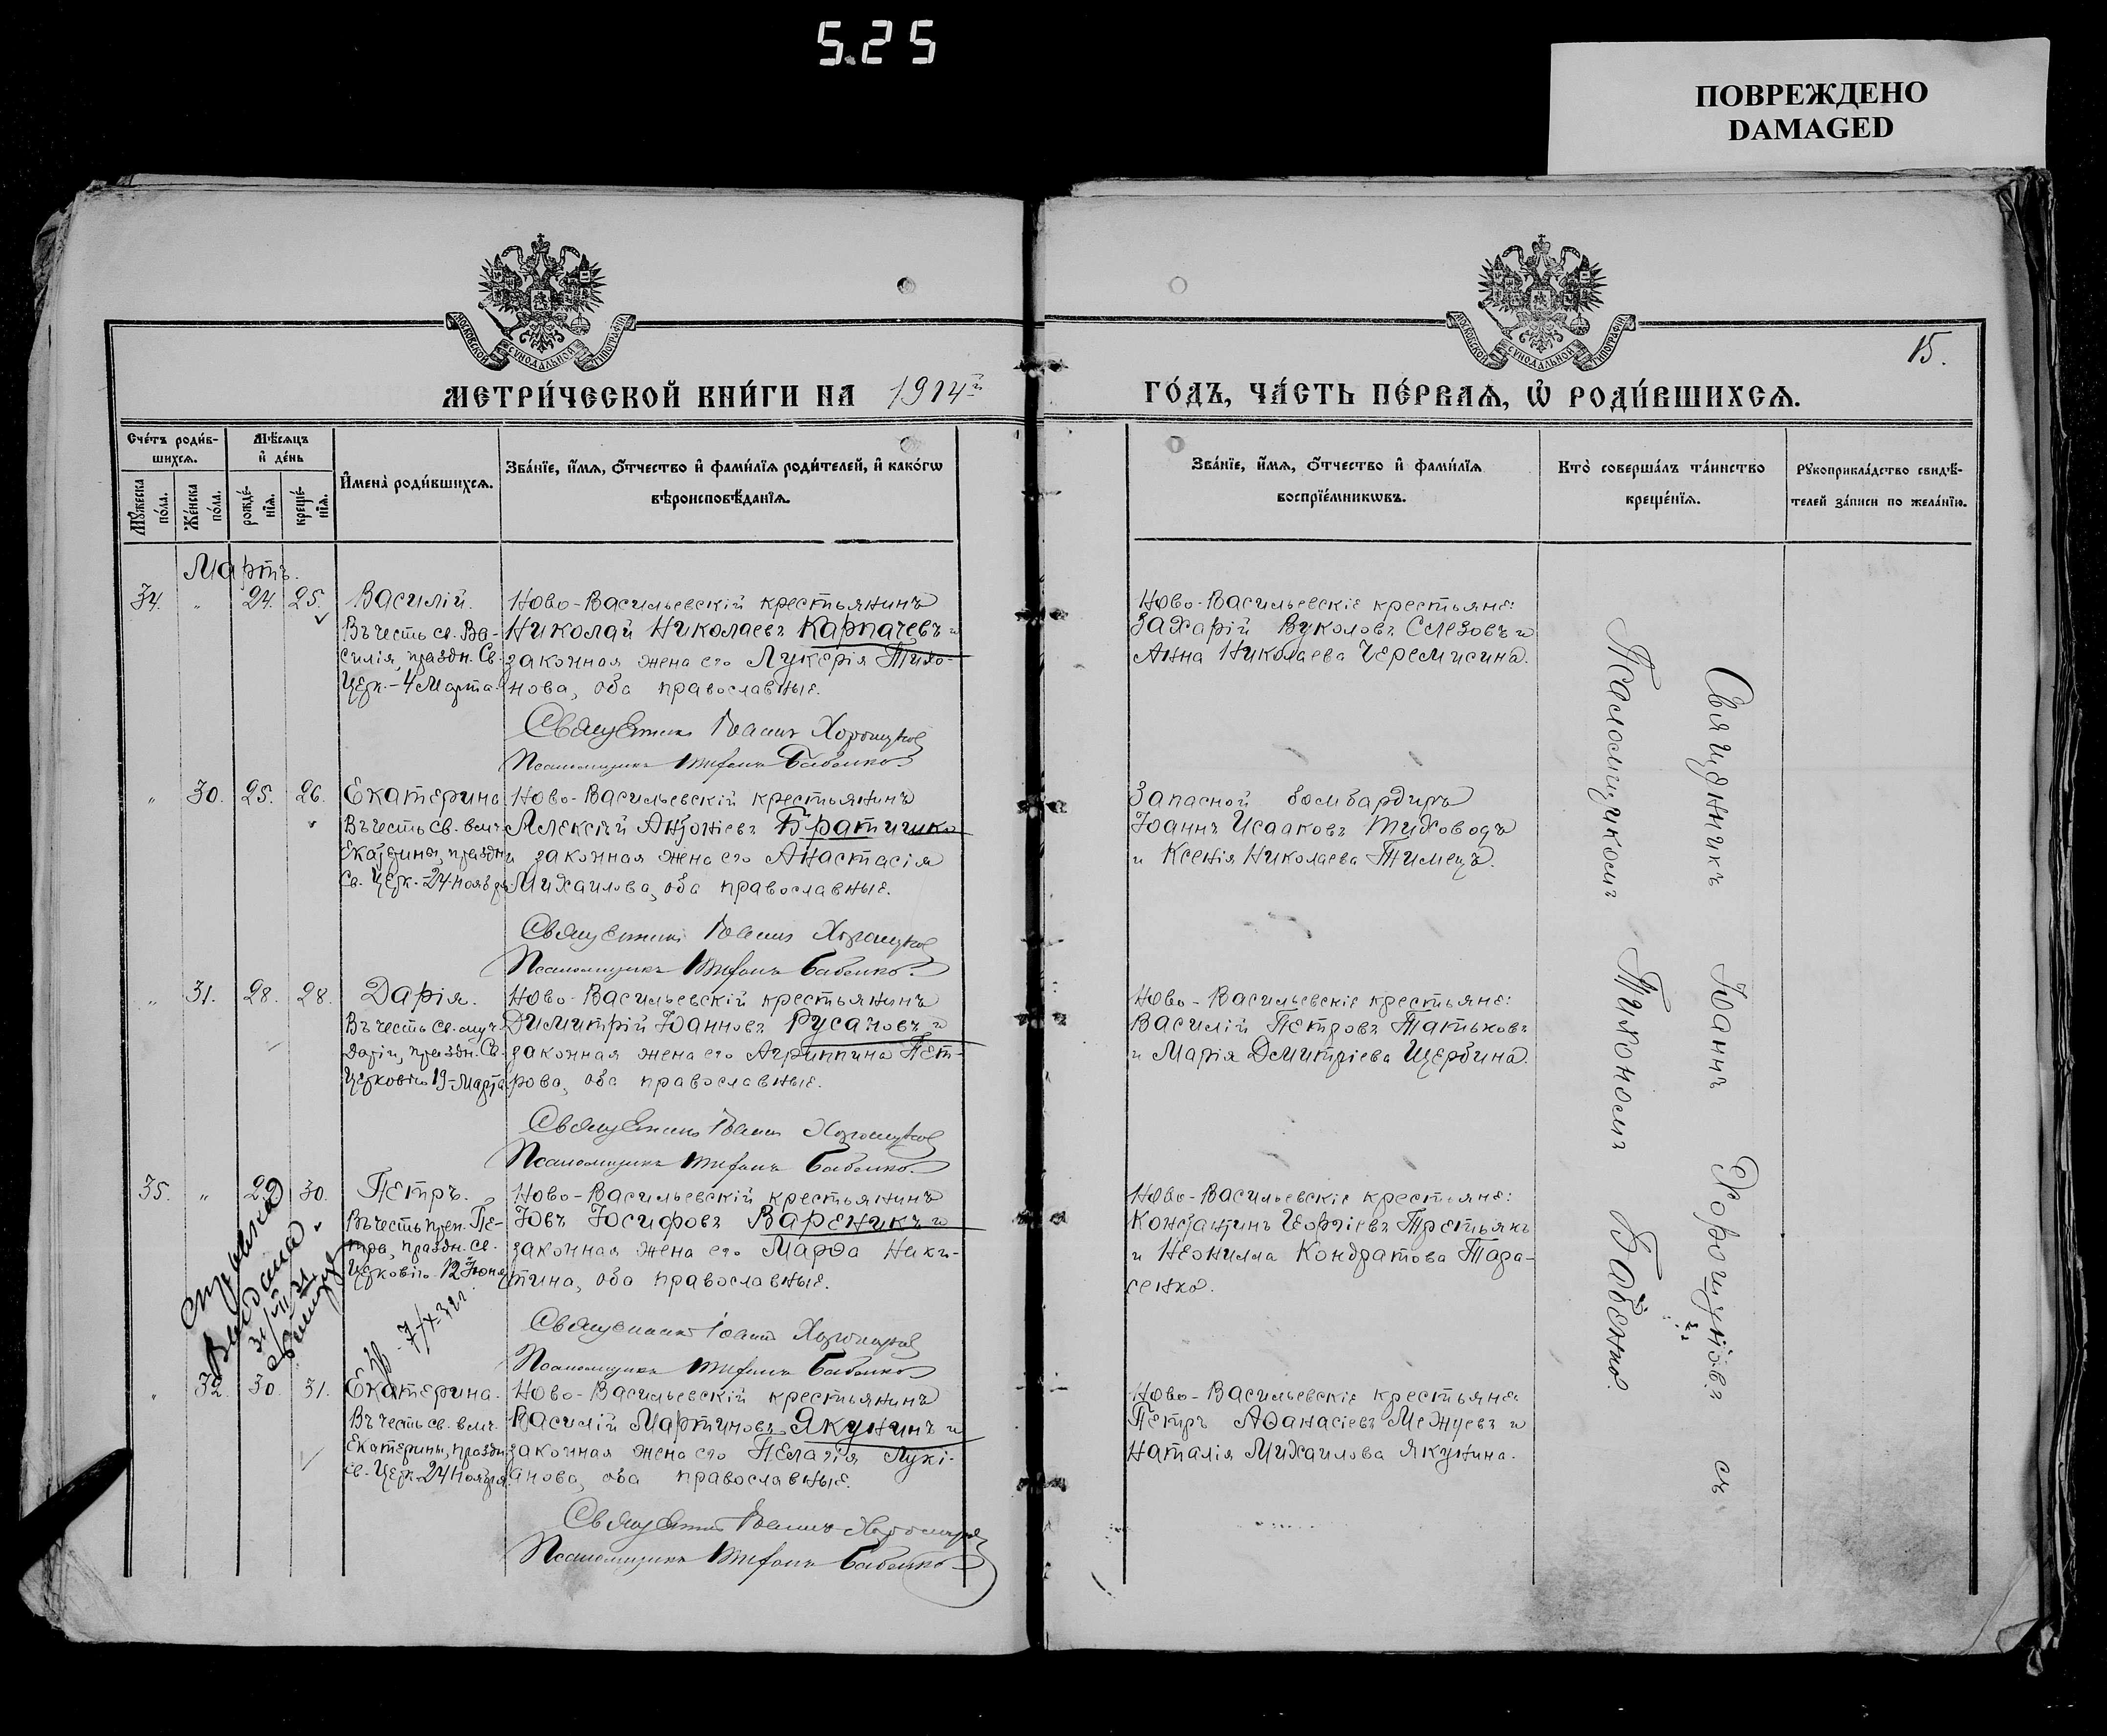 5.25
ПОВРЕЖДЕНО
DAMAGED
МОСКОВСКОЙ СѴНОДАЛЬНОЙ ТИПОГРАФІИ
МОСКОВСКОЙ СѴНОДАЛЬНОЙ ТИПОГРАФІИ
15.
МЕТРИ́ЧЕСКОЙ КНИ́ГИ НА 1914й
ГО́ДЪ, ЧА́СТЬ ПЕ́РВАѦ, Ѡ҆ РОДИ́ВШИХСѦ.
Сче́тъ роди́в-
шихсѧ.
Мѣ́сѧцъ
и҆ де́нь
Мꙋ́жеска
по́ла.
Же́нска
по́ла.
рожде́-
нїѧ.
креще́-
нїѧ.
И҆мена̀ роди́вшихсѧ.
Зва́нїе, и҆́мѧ, ѻ҆́тчество и҆ фами́лїѧ роди́телей, и҆ како́гѡ
вѣроисповѣ́данїѧ.
Зва́нїе, и҆́мѧ, ѻ҆́тчество и҆ фами́лїѧ
воспрїе́мникѡвъ.
Кто̀ соверша́лъ та́инство
креще́нїѧ.
Рꙋкоприкла́дство свидѣ́-
телей за́писи по жела́нїю.
Мартъ.
34. " 24. 25.
Василій.
Въ честь св. Ва-
силія, праздн. Св.
Церк. - 4 Марта
Ново-Васильевскій крестьянинъ
Николай Николаевъ Карпачевъ и
законная жена его Лукерія Тихо-
нова, оба православные.
Священникъ Іоаннъ Хорошунов
Псаломщикъ Тихонъ Бабенко
Ново-Васильевскіе крестьяне:
Захарій Вуколовъ Слезовъ и
Анна Николаева Черемисина.
" 30. 25. 26.
Екатерина
Въ честь св. влмч.
Екатерины, праздн.
Св. Церк. - 24 ноября
Ново-Васильевскій крестьянинъ
Алексѣй Антоніевъ Братишко
и законная жена его Анастасія
Михаилова, оба православные.
Священникъ Іоаннъ Хорошунов
Псаломщикъ Тихонъ Бабенко.
Запасной бомбардиръ
Іоаннъ Исааковъ Тиховодъ
и Ксенія Николаева Тимецъ.
" 31. 28. 28.
Дарія.
Въ честь св. муч.
Даріи, праздн. Св.
Церковію 19 - Марта
Ново-Васильевскій крестьянинъ
Димитрій Іоанновъ Русановъ и
законная жена его Агриппина Пет-
рова, оба православные.
Священникъ Іоаннъ Хорошунов
Псаломщикъ Тихонъ Бабенко.
Ново-Васильевскіе крестьяне:
Василій Петровъ Татьковъ
и Марія Дмитріева Щербина.
35. " 29 30.
Петръ.
Въ честь преп. Пе-
тра, праздн. св.
Церковію 12 Іюня
Ново-Васильевскій крестьянинъ
Іовъ Іосифовъ Вареникъ и
законная жена его Марѳа Ники-
тина, оба православные.
Священникъ Іоаннъ Хорошунов
Псаломщикъ Тихонъ Бабенко
Ново-Васильевскіе крестьяне:
Константинъ Георгіевъ Третьякъ
и Неонилла Кондратова Тара-
сенко.
Справка
Выдана
" 32. 30. 31.
Екатерина.
Въ честь св. влмч.
Екатерины, праздн.
св. Церк. 24 Ноября
Ново-Васильевскій крестьянинъ
Василій Мартиновъ Якунинъ и
законная жена его Пелагія Лукі-
анова, оба православные.
Священникъ Іоаннъ Хорошунов
Псаломщикъ Тихонъ Бабенко
Ново-Васильевскіе крестьяне:
Петръ Аѳанасіевъ Межуевъ и
Наталія Михаилова Якунина.
Священникъ Іоаннъ Хорошуновъ съ
Псаломщикомъ Тихономъ Бабенко.